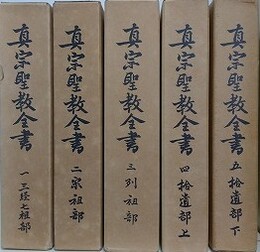 真宗聖教全書
一 三経七祖部
真宗聖教全書
二 宗祖部
真宗聖教全書
三 列祖部
真宗聖教全書
四 拾遺部 上
真宗聖教全書
五 拾遺部 下